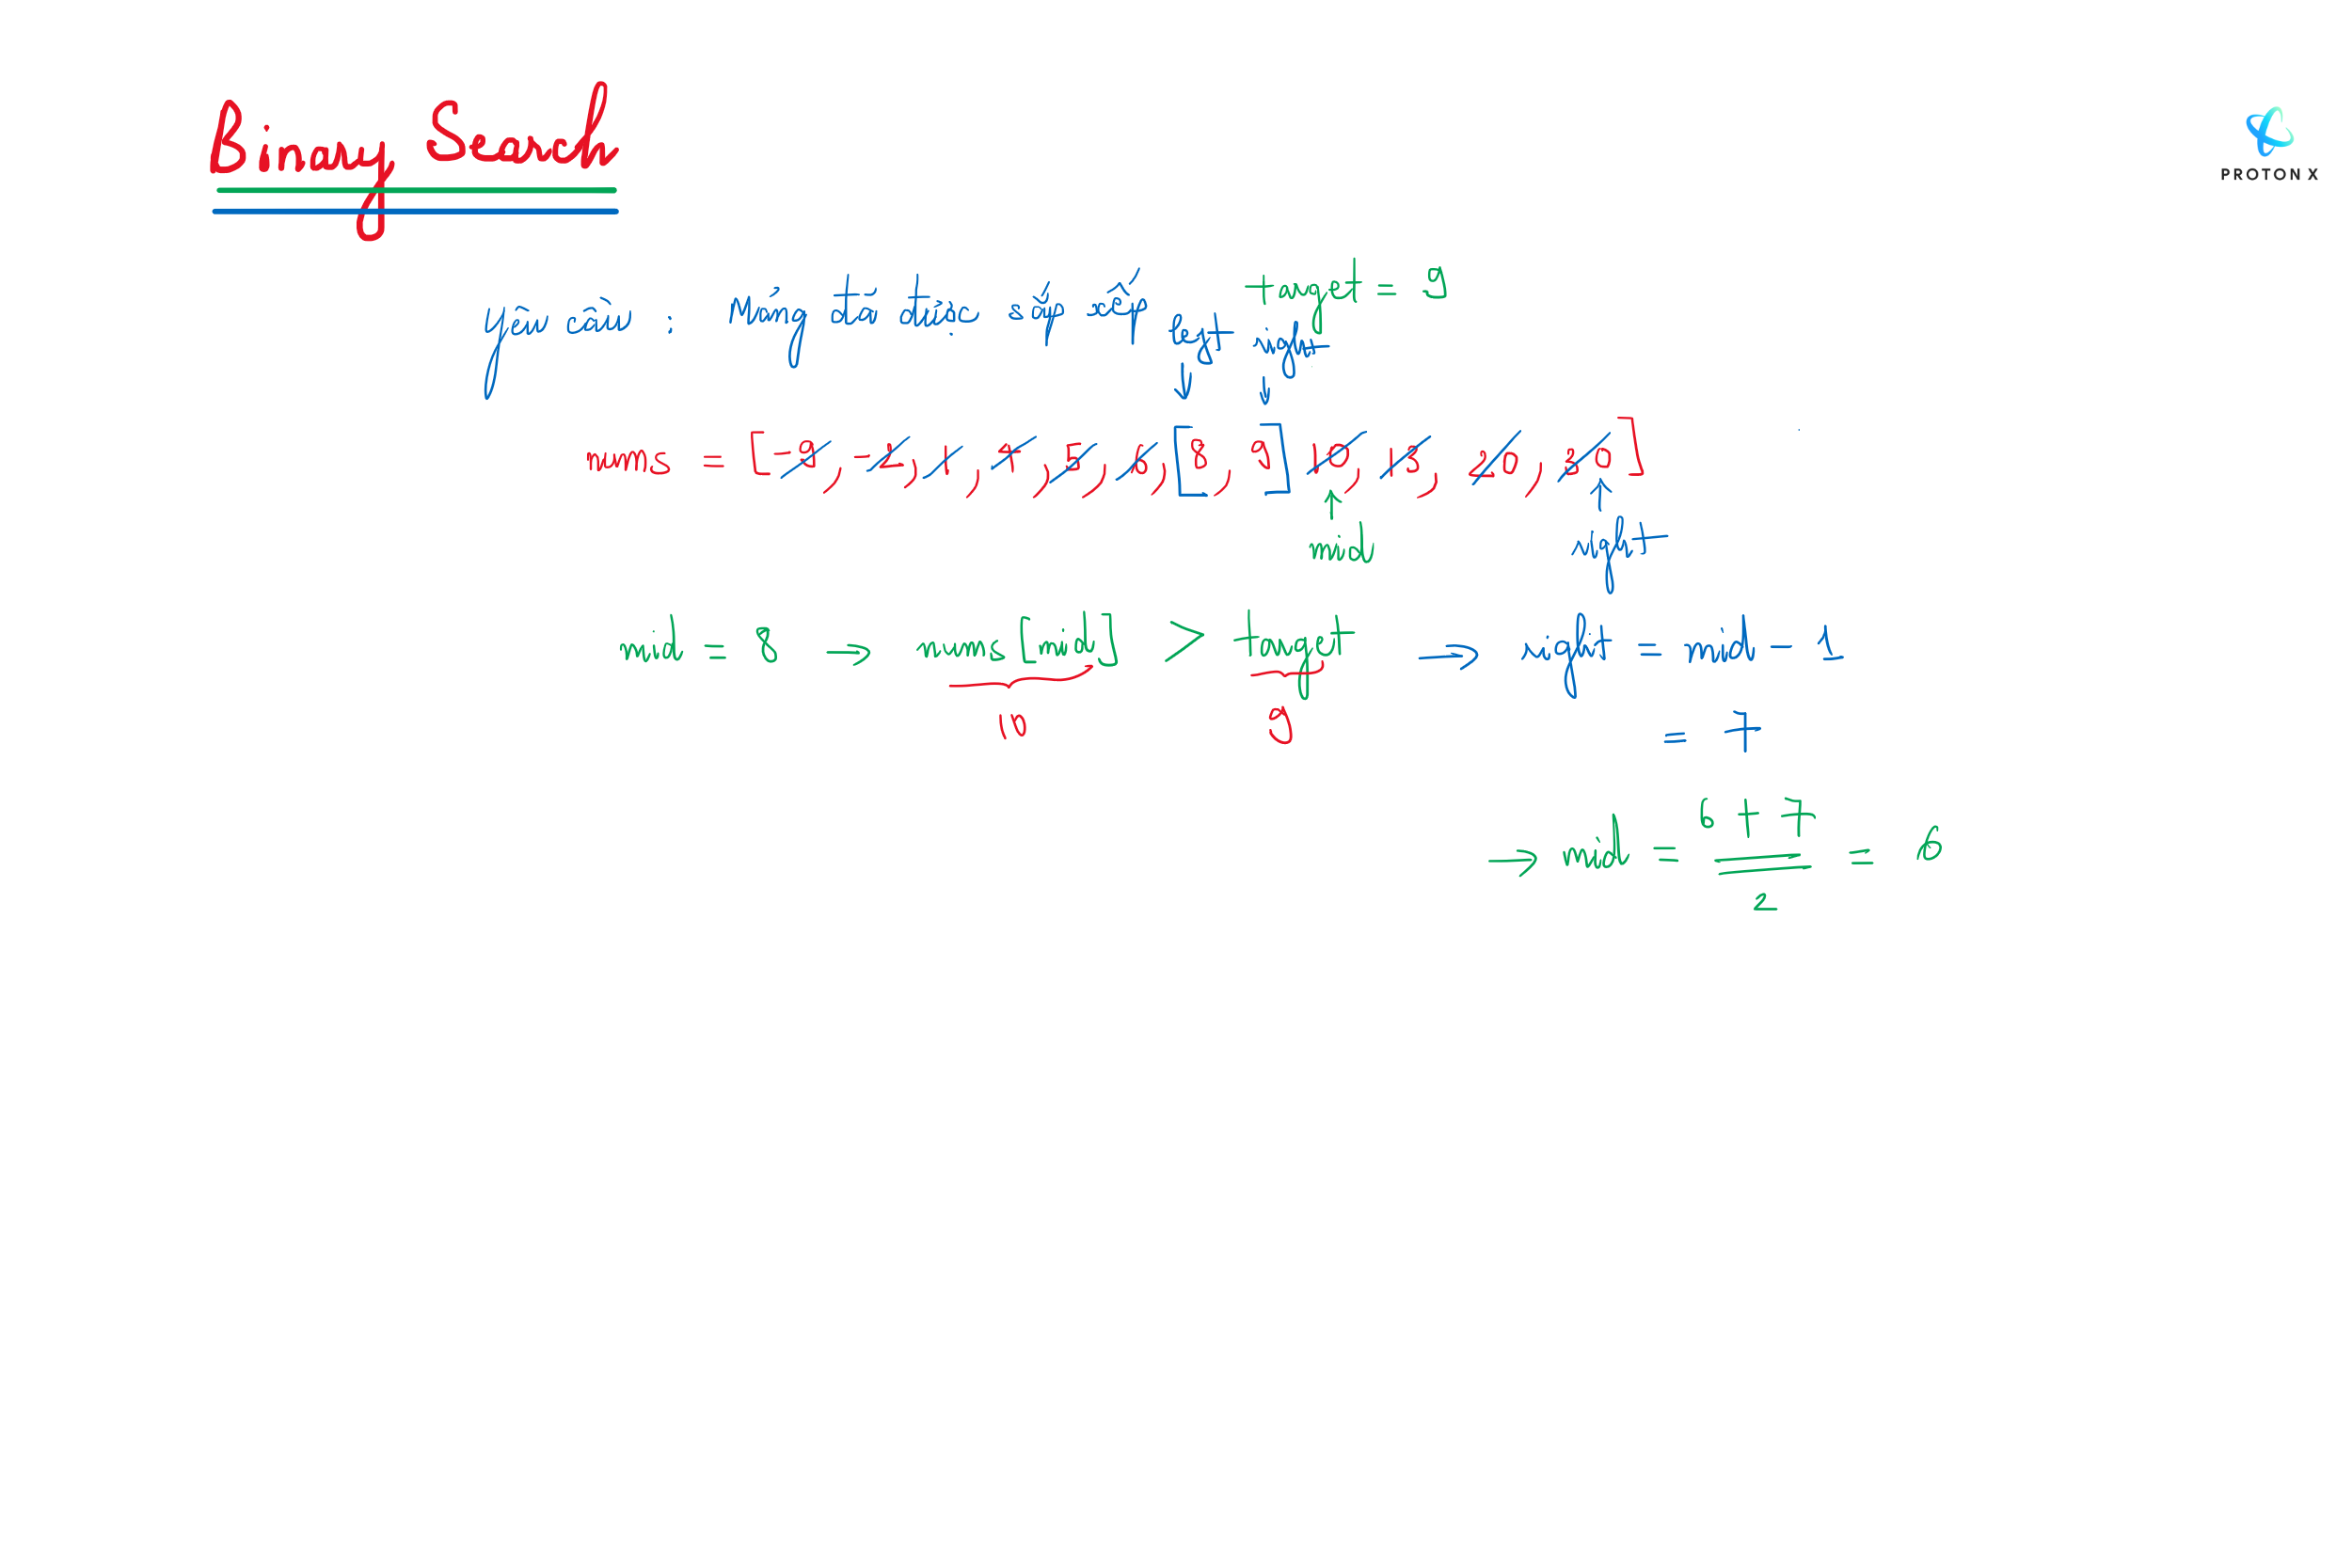 Binary Search
PROTON X
yêu cầu : Mảng đã được sắp xếp
target = 9
left right
↓ ↓
nums = [-9, -2, 1, 4, 5, 6, [8, 9] 10, 13, 20, 30]
↑ ↑
mid right
mid = 8 → nums[mid] > target ⇒ right = mid - 1
10 9 = 7
→ mid = 6 + 7 / 2 = 6